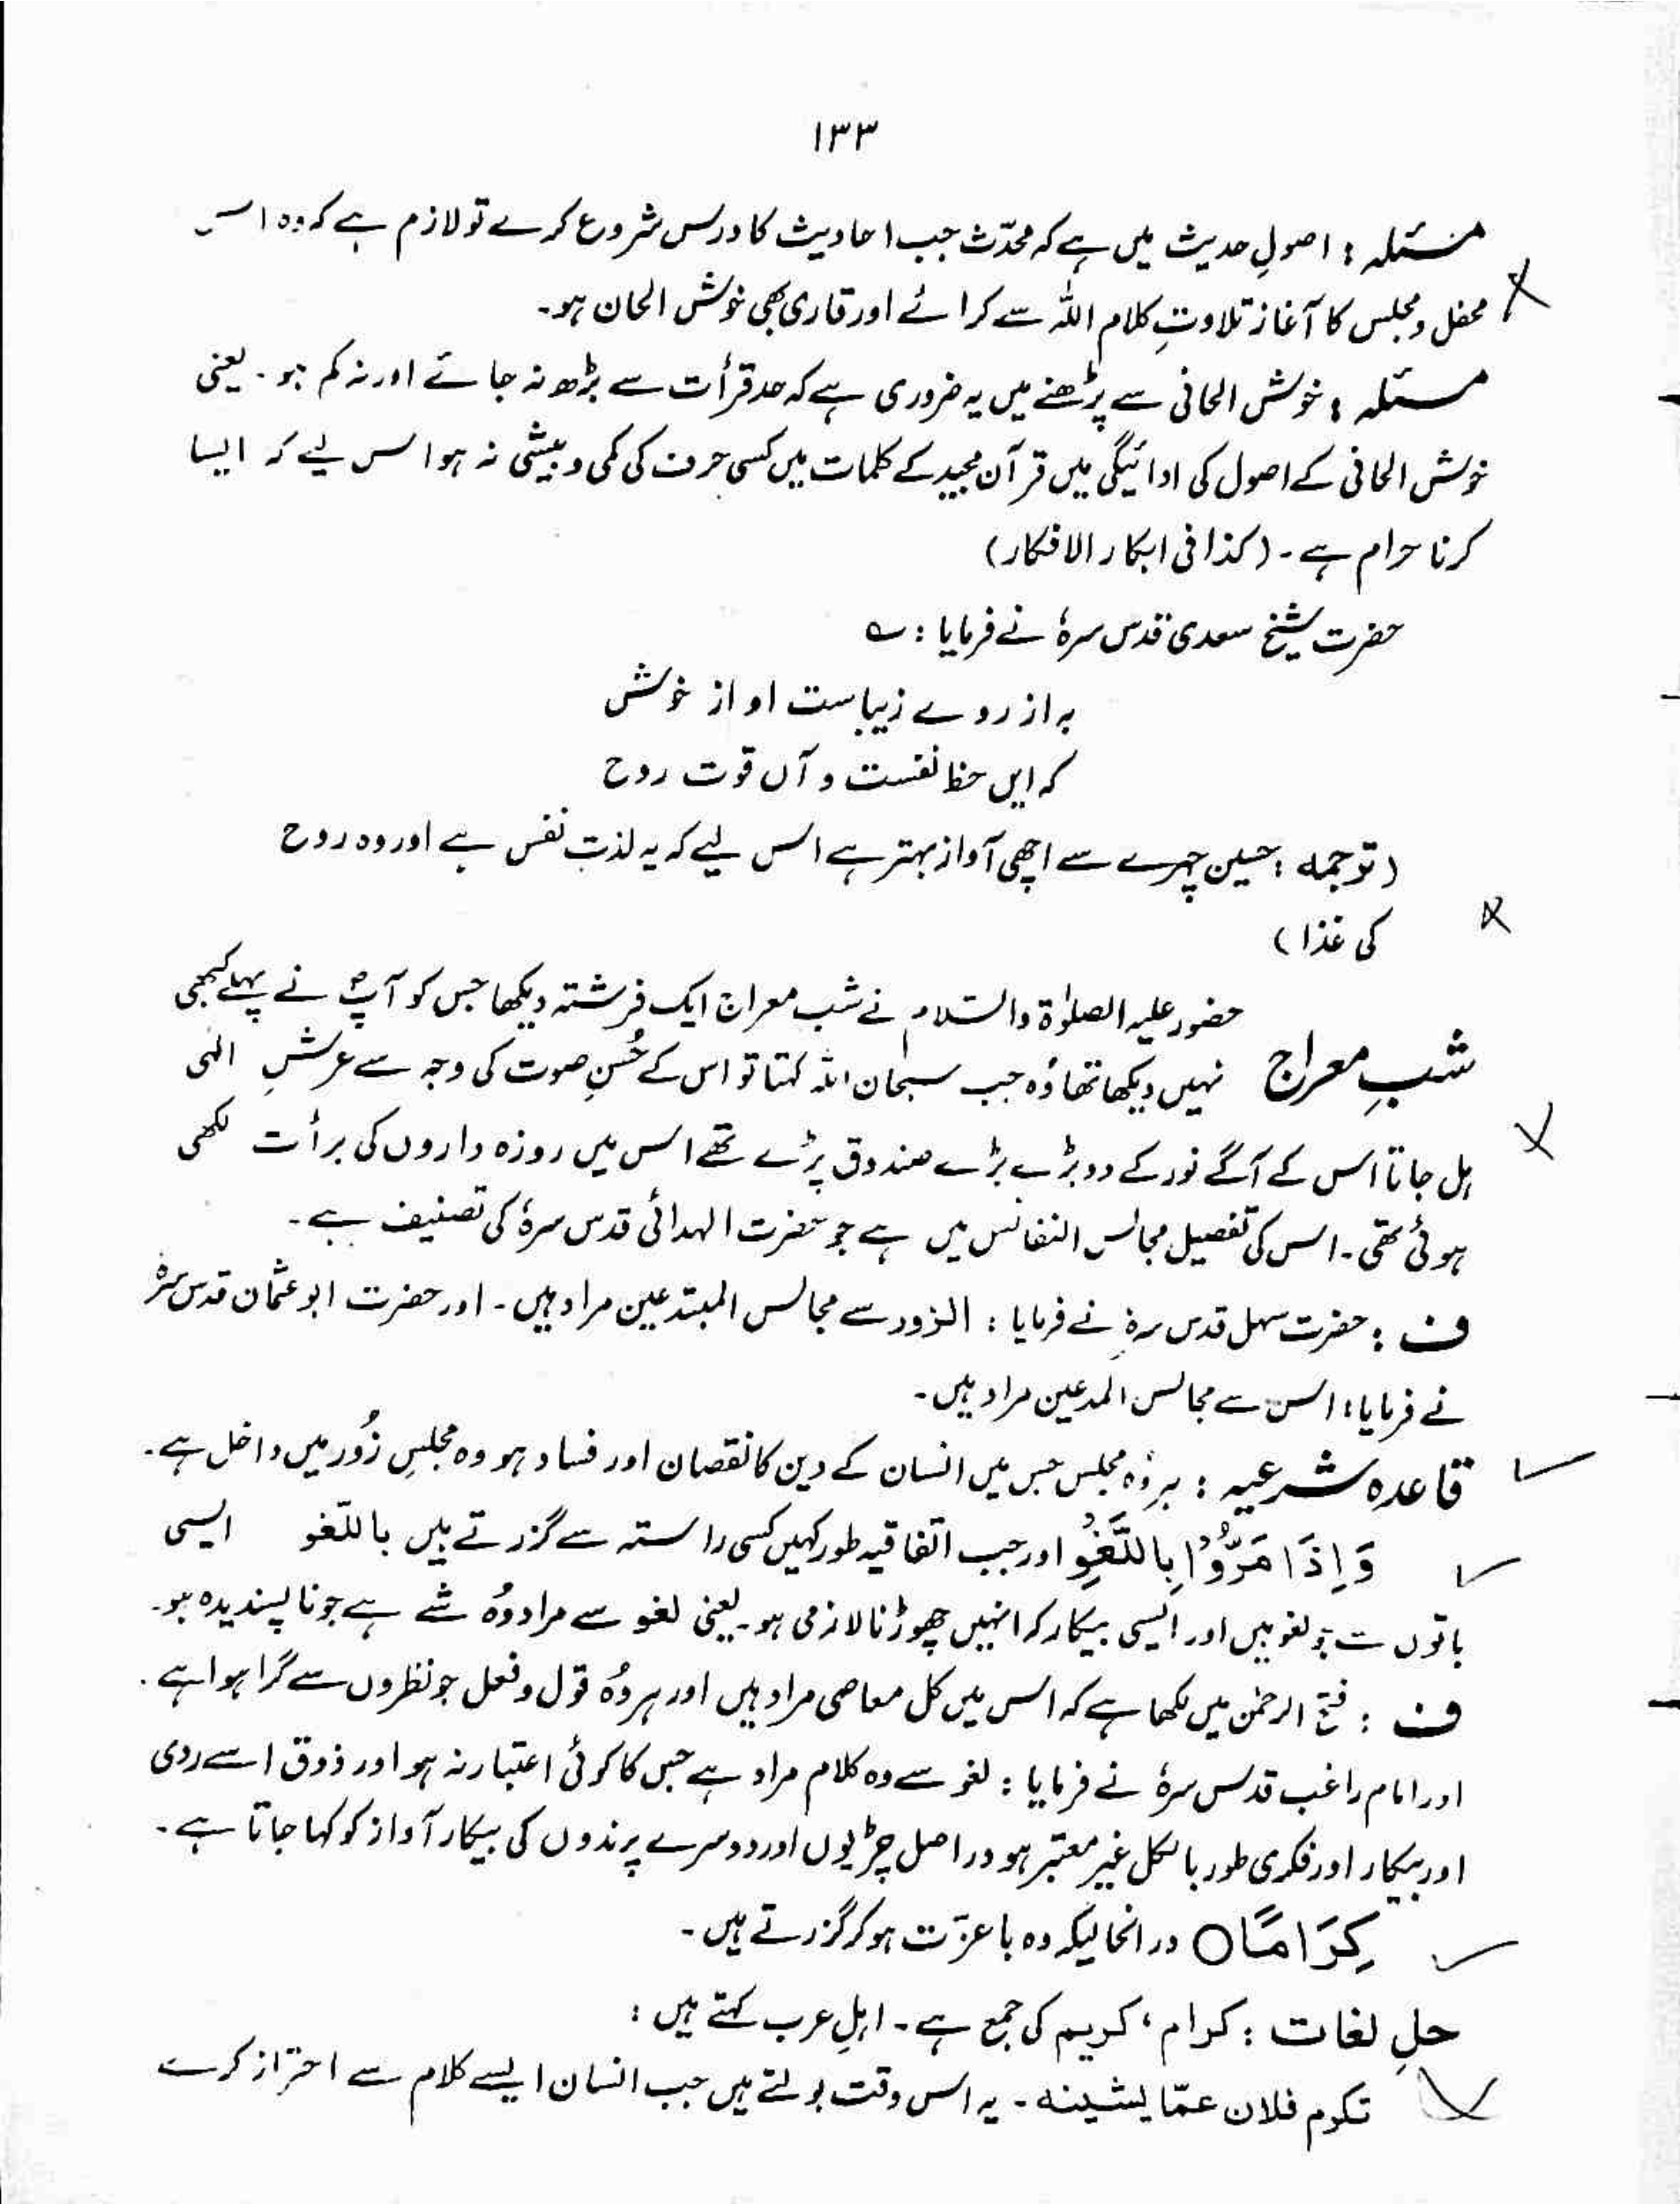 ۱۳۳
مسئلہ : اصولِ حدیث میں ہے کہ محدّث جب احادیث کا درس شروع کرے تو لازم ہے کہ وہ اس
محفل و مجلس کا آغاز تلاوتِ کلام اللہ سے کرائے اور قاری بھی خوش الحان ہو۔
مسئلہ : خوش الحانی سے پڑھنے میں یہ ضروری ہے کہ حد قرأت سے بڑھ نہ جائے اور نہ کم ہو۔ یعنی
خوش الحانی کے اصول کی ادائیگی میں قرآن مجید کے کلمات میں کسی حرف کی کمی و بیشی نہ ہو اس لیے کہ ایسا
کرنا حرام ہے۔ (کذا فی ابکار الافکار)
حضرت شیخ سعدی قدس سرہٗ نے فرمایا : ؎
بہ از روے زیباست او از خوش
کہ ایں حظ نفست و آں قوت روح
(ترجمہ : حسین چہرے سے اچھی آواز بہتر ہے اس لیے کہ یہ لذتِ نفس ہے اور وہ روح
کی غذا)
حضور علیہ الصلوٰۃ والسّلام نے شب معراج ایک فرشتہ دیکھا جس کو آپؐ نے پہلے کبھی
شبِ معراج نہیں دیکھا تھا وُہ جب سبحان اللہ کہتا تو اس کے حُسنِ صوت کی وجہ سے عرشِ الٰہی
ہل جاتا اس کے آگے نور کے دو بڑے بڑے صندوق پڑے تھے اس میں روزہ داروں کی برأت لکھی
ہوئی تھی۔ اس کی تفصیل مجالس النفائس میں ہے جو حضرت الہدائی قدس سرہٗ کی تصنیف ہے۔
ف : حضرت سہل قدس سرہٗ نے فرمایا : الزور سے مجالس المبتدعین مراد ہیں۔ اور حضرت ابو عثمان قدس سرہٗ
نے فرمایا : اس سے مجالس المدعین مراد ہیں۔
قاعدہ شرعیہ : ہر وُہ مجلس جس میں انسان کے دین کا نقصان اور فساد ہو وہ مجلسِ زُور میں داخل ہے۔
وَاِذَا مَرُّوْا بِاللَّغْوِ اور جب اتفاقیہ طور کہیں کسی راستہ سے گزرتے ہیں باللّغو ایسی
باتوں سے جو لغو ہیں اور ایسی بیکار کہ انہیں چھوڑنا لازمی ہو۔ یعنی لغو سے مراد وُہ شے ہے جو ناپسندیدہ ہو۔
ف : فتح الرحمٰن میں لکھا ہے کہ اس میں کل معاصی مراد ہیں اور ہر وُہ قول و فعل جو نظروں سے گرا ہوا ہے۔
اور امام راغب قدس سرہٗ نے فرمایا : لغو سے وہ کلام مراد ہے جس کا کوئی اعتبار نہ ہو اور ذوق اسے ردی
اور بیکار اور فکری طور بالکل غیر معتبر ہو دراصل چڑیوں اور دوسرے پرندوں کی بیکار آواز کو کہا جاتا ہے۔
كِرَامًا ○ درانحالیکہ وہ با عزّت ہو کر گزرتے ہیں۔
حلِ لغات : کرام ، کریم کی جمع ہے۔ اہلِ عرب کہتے ہیں :
تکرم فلان عمّا یشینہ۔ یہ اس وقت بولتے ہیں جب انسان ایسے کلام سے احتراز کرے